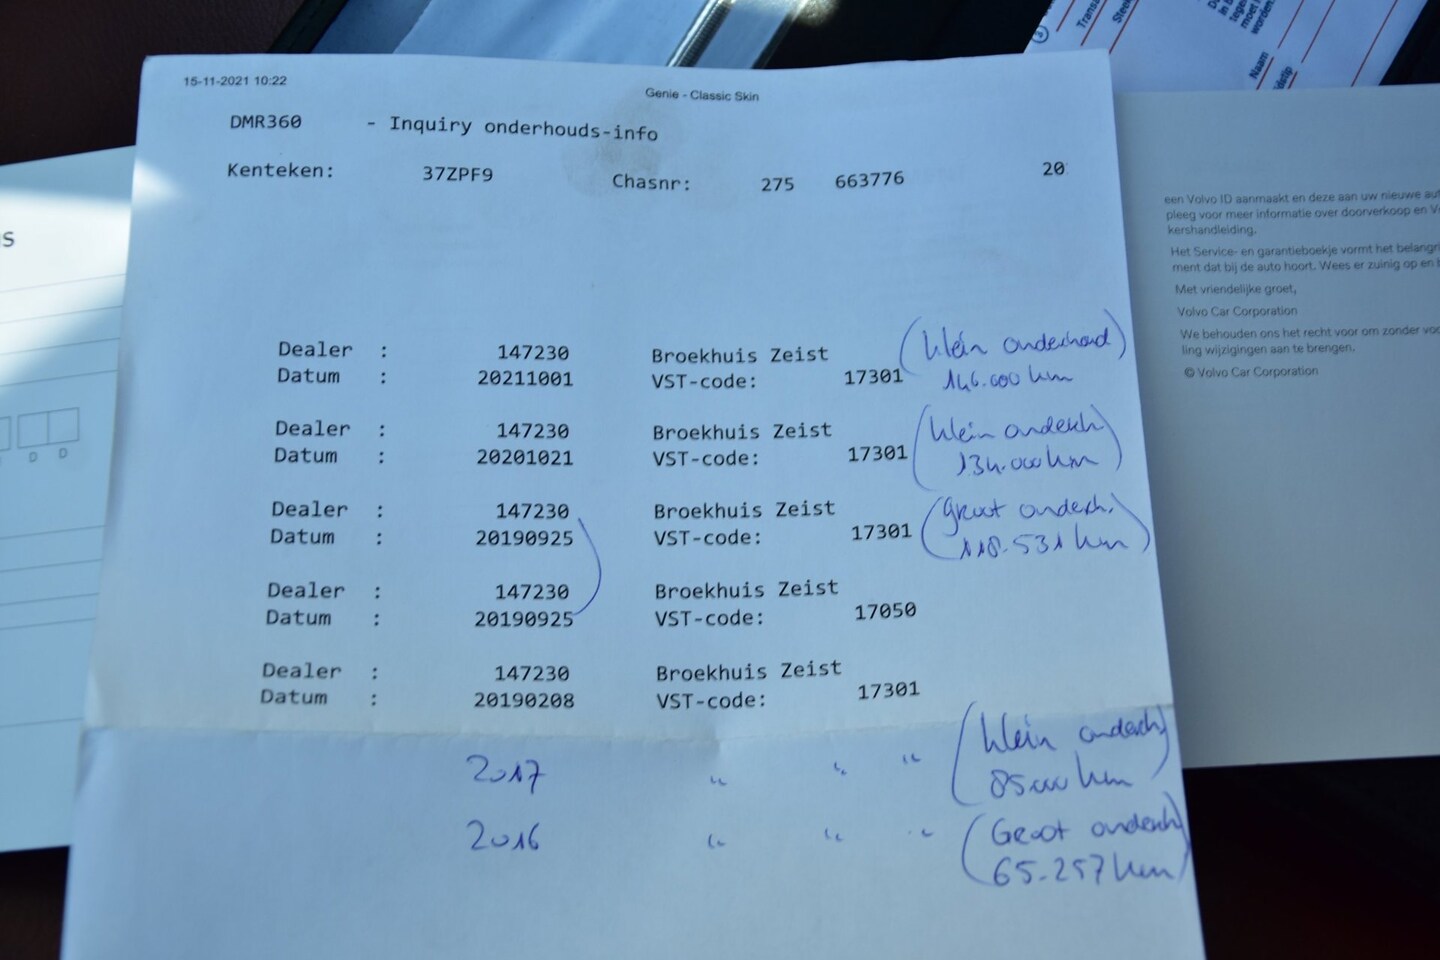 15-11-2021 10:22
Genie - Classic Skin
DMR360 - Inquiry onderhouds-info
Kenteken: 37ZPF9 Chasnr: 275 663776 20
Dealer : 147230 Broekhuis Zeist (klein onderhoud)
Datum : 20211001 VST-code: 17301 146.000 km
Dealer : 147230 Broekhuis Zeist (klein onderh)
Datum : 20201021 VST-code: 17301 134.000 km
Dealer : 147230 Broekhuis Zeist (groot onderh.
Datum : 20190925 VST-code: 17301 118.531 km)
Dealer : 147230 Broekhuis Zeist
Datum : 20190925 VST-code: 17050
Dealer : 147230 Broekhuis Zeist
Datum : 20190208 VST-code: 17301
2017 " " " (klein onderh)
85.000 km
2016 " " " (Groot onderh)
65.257 km
een Volvo ID aanmaakt en deze aan uw nieuwe
pleeg voor meer informatie over doorverkoop en
kershandleiding.
Het Service- en garantieboekje vormt het belangri
ment dat bij de auto hoort. Wees er zuinig op en
Met vriendelijke groet,
Volvo Car Corporation
We behouden ons het recht voor om zonder voo
ling wijzigingen aan te brengen.
© Volvo Car Corporation
s
D D
Naam
worden.